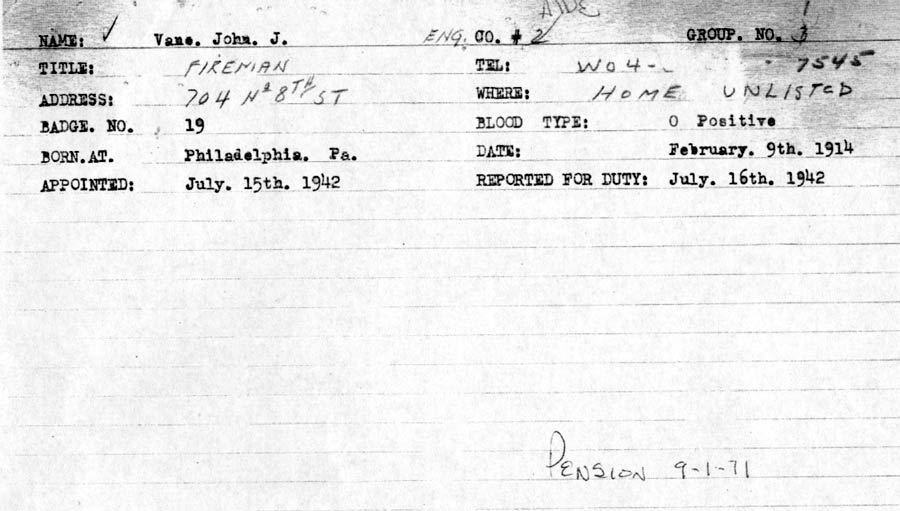 AIDE
NAME: ✓ Vane. John. J. ENG. CO. # 2 GROUP. NO. 3
TITLE: FIREMAN TEL: WO4- 7545
ADDRESS: 704 Nº 8TH ST WHERE: HOME UNLISTED
BADGE. NO. 19 BLOOD TYPE: O Positive
BORN.AT. Philadelphia. Pa. DATE: February. 9th. 1914
APPOINTED: July. 15th. 1942 REPORTED FOR DUTY: July. 16th. 1942
PENSION 9-1-71